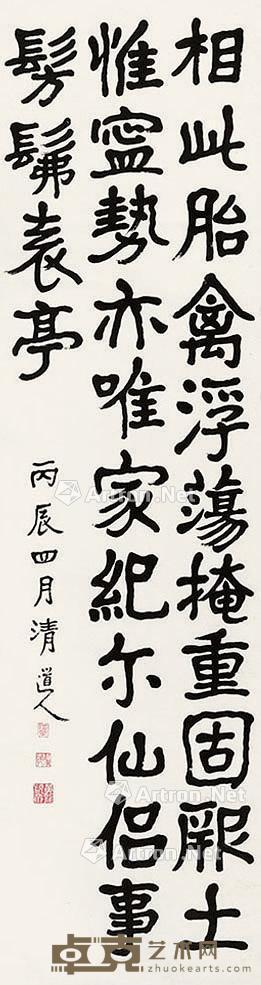 相此胎禽浮蕩掩重固厥土
惟寍勢亦唯家紀尔仙侣事
髣髴袁亭
丙辰四月清道人
Artron.Net
Artron.Net
Artron.Net
Artron.Net
点克艺术网
zhuokearts.com